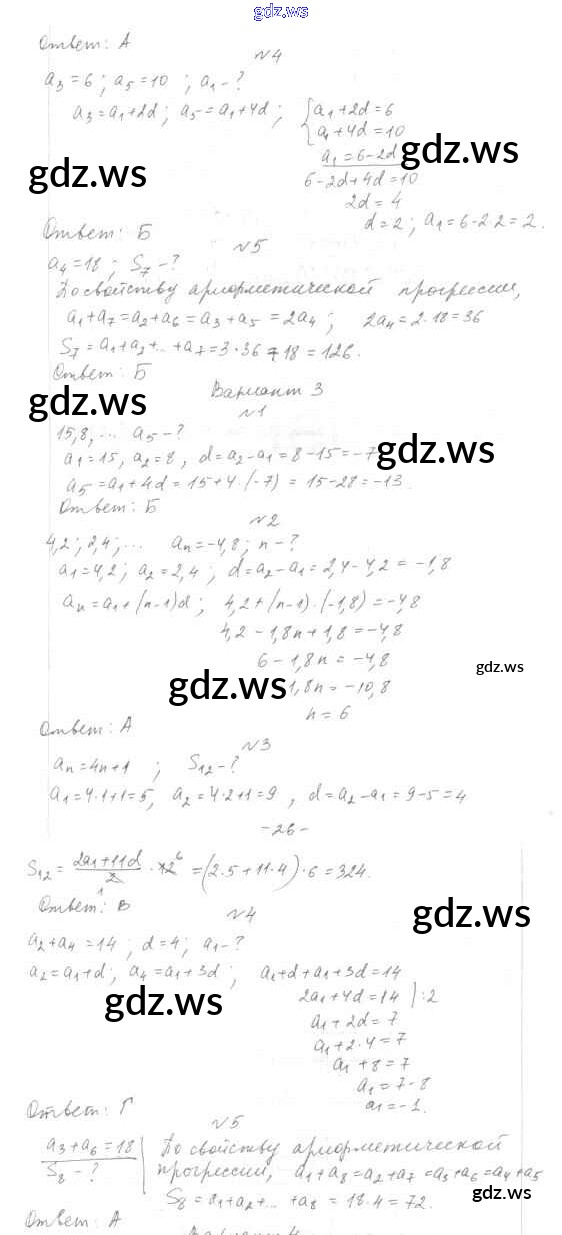 gdz.ws
Ответ: А
№4
a₃=6; a₅=10; a₁-?
a₃=a₁+2d; a₅=a₁+4d; {a₁+2d=6
a₁+4d=10
a₁=6-2d
gdz.ws
gdz.ws
6-2d+4d=10
2d=4
d=2; a₁=6-2·2=2.
Ответ: Б
№5
a₄=18; S₇-?
По свойству арифметической прогрессии,
a₁+a₇=a₂+a₆=a₃+a₅=2a₄; 2a₄=2·18=36
S₇=a₁+a₂+...+a₇=3·36+18=126.
Ответ: Б
Вариант 3
gdz.ws
№1
15,8,... a₅-?
a₁=15, a₂=8, d=a₂-a₁=8-15=-7
gdz.ws
a₅=a₁+4d=15+4·(-7)=15-28=-13.
Ответ: Б
№2
4,2; 2,4; ... aₙ=-4,8; n-?
a₁=4,2; a₂=2,4; d=a₂-a₁=2,4-4,2=-1,8
aₙ=a₁+(n-1)d; 4,2+(n-1)·(-1,8)=-4,8
4,2-1,8n+1,8=-4,8
6-1,8n=-4,8
gdz.ws
gdz.ws
1,8n=-10,8
n=6
Ответ: А
№3
aₙ=4n+1; S₁₂-?
a₁=4·1+1=5, a₂=4·2+1=9, d=a₂-a₁=9-5=4
-26-
S₁₂=(2a₁+11d)/2·12=(2·5+11·4)·6=324.
Ответ: В
gdz.ws
№4
a₂+a₄=14; d=4; a₁-?
a₂=a₁+d; a₄=a₁+3d; a₁+d+a₁+3d=14
2a₁+4d=14 |:2
gdz.ws
a₁+2d=7
a₁+2·4=7
a₁+8=7
a₁=7-8
a₁=-1.
Ответ: Г
№5
a₃+a₆=18
S₈-?
По свойству арифметической
прогрессии, a₁+a₈=a₂+a₇=a₃+a₆=a₄+a₅
gdz.ws
S₈=a₁+a₂+...+a₈=18·4=72.
Ответ: А